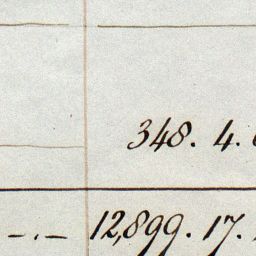 348. 4.
-.- 12,899. 17.